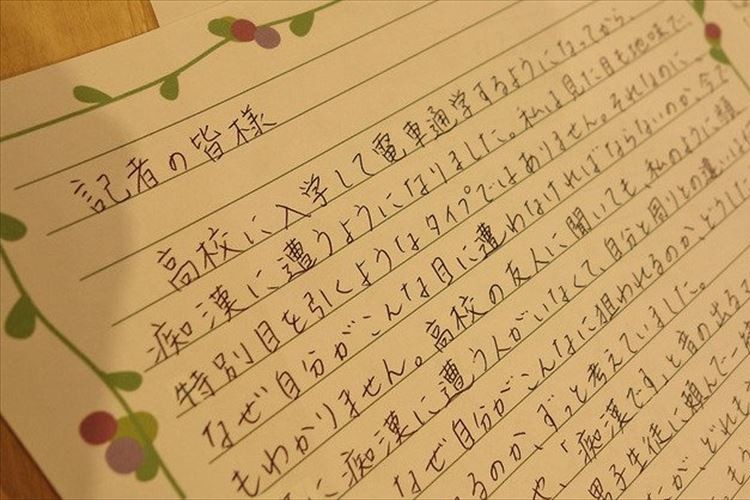 記者の皆様
高校に入学して電車通学するようになってから、
痴漢に遭うようになりました。私は見た目も地味で、
特別目を引くようなタイプではありません。それなのに、
なぜ自分がこんな目に遭わなければならないのか、今で
もわかりません。高校の友人に聞いても、私のように頻
に痴漢に遭う人がいなくて、自分と周りとの違いは
なぜ自分がこんなに狙われるのか、どうした
るのか、ずっと考えていました。
や、「痴漢です」と音の出る
男子生徒に頼んで一
が、どれも